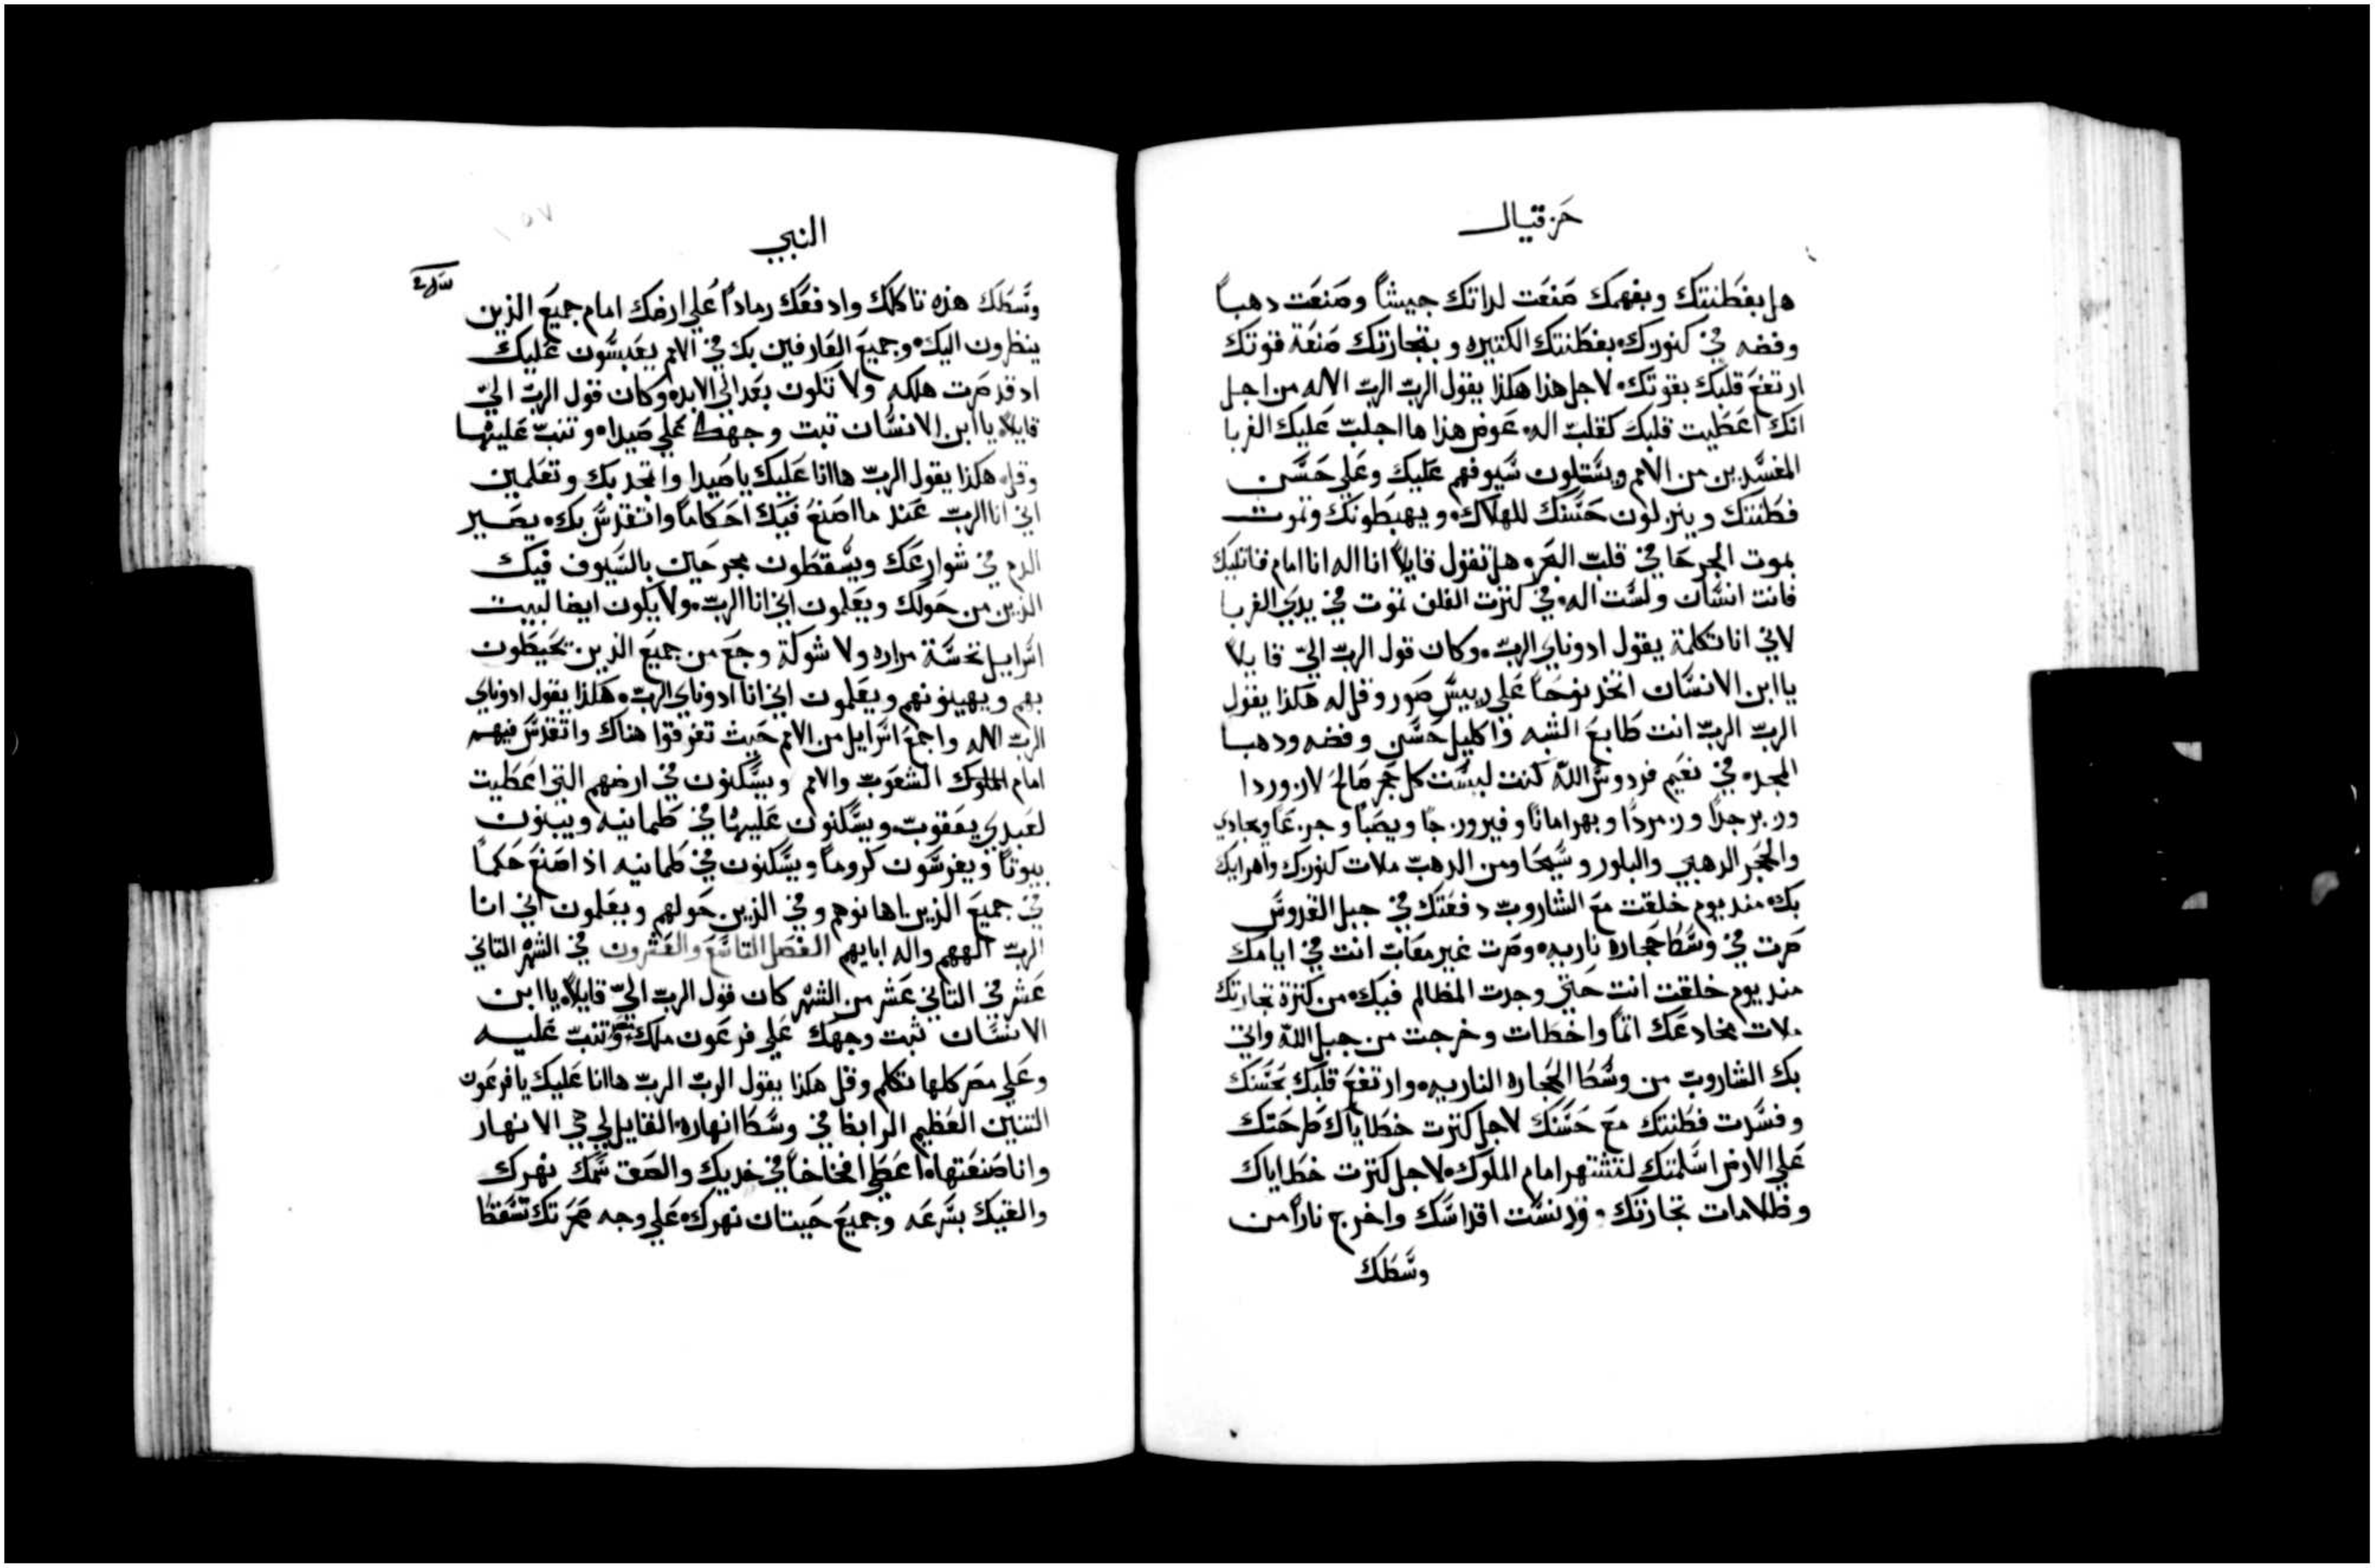 حزقيال
هل بفطنتك وبفهمك صنعت لذاتك جيشاً وصنعت دهباً
وفضه في كنوزك بفطنتك الكتيره وبتجارتك صنعة قوتك
ارتفع قلبك بقوتك لاجل هذا هكذا يقول الرب الرب الاله من اجل
انك اعطيت قلبك كقلب اله عوض هذا ها اجلب عليك الغربا
المفسدين من الامم ويستلون سيوفهم عليك وعلي حسن
فطنتك وينزلون حسنك للهلاك ويهبطونك وتموت
بموت الجرحا في قلب البحر هل تقول قايلاً انا اله انا امام قاتليك
فانت انسان ولست اله في كنزت الغلف تموت في يدي الغربا
لاني انا تكلمة يقول ادوناي الرب وكان قول الرب الي قايلاً
يا ابن الانسان اتخذ نوحاً علي رييس صور وقل له هكذا يقول
الرب الرب انت طابع الشبه واكليل حسن وفضه ودهبا
المجد في نعيم فردوس الله كنت لبست كل حجر صالح لازوردا
وزبرجداً وزمرداً وبهراماناً وفيروزجاً ويصباً وجزعاً وبجادي
والحجر الدهبي والبلور وسبجا ومن الدهب ملات كنوزك واهرايك
بك مند يوم خلقت مع الشاروب دفعتك في جبل القدوس
صرت في وسط حجارة ناريه وصرت غير معاب انت في ايامك
مند يوم خلقت انت حتي وجدت المظالم فيك من كنزة تجارتك
ملات مخادعك اتماً واخطات وخرجت من جبل الله واتي
بك الشاروب من وسط الحجاره الناريه وارتفع قلبك بحسنك
وفسدت فطنتك مع حسنك لاجل كنزت خطاياك طرحتك
علي الارض اسلمتك لتشتهر امام الملوك لاجل كنزت خطاياك
وظلامات تجارتك قد نست اقداسك واخرج ناراً من
وسطك
النبي
وسطك هذه تاكلك وادفعك رماداً علي ارضك امام جميع الذين
ينظرون اليك وجميع العارفين بك في الامم يعبسون عليك
اد قد صرت هلكه ولا تكون بعد الي الابد وكان قول الرب الي
قايلاً يا ابن الانسان تبت وجهك علي صيدا وتنب عليها
وقل هكذا يقول الرب هاانا عليك يا صيدا واتمجد بك وتعلمين
اني انا الرب عند ما اصنع فيك احكاماً واتقدس بك يصير
الدم في شوارعك ويسقطون مجرحين بالسيوف فيك
الذين من حولك ويعلمون اني انا الرب ولا يكون ايضا لبيت
اسرايل نخسة مراره ولا شوكة وجع من جميع الذين تحيطون
بهم ويهينونهم ويعلمون اني انا ادوناي الرب هكذا يقول ادوناي
الرب الاله واجمع اسرايل من الامم حيث تفرقوا هناك واتقدس فيهم
امام الملوك الشعوب والامم ويسكنون في ارضهم التي اعطيت
لعبدي يعقوب ويسكنون عليها في طمانيه ويبنون
بيوتاً ويغرسون كروما ويسكنون في طمانيه اذا اصنع حكماً
في جميع الذين اهانوهم وفي الذين حولهم ويعلمون اني انا
الرب الههم واله ابايهم الفصل التاسع والعشرون في الشهر التاني
عشر في التاني عشر من الشهر كان قول الرب الي قايلاً يا ابن
الانسان ثبت وجهك علي فرعون ملك وتنب عليه
وعلي مصر كلها تكلم وقل هكذا يقول الرب الرب هاانا عليك يا فرعون
التنين العظيم الرابظ في وسط انهاره القايل لي هي الانهار
وانا صنعتها اعطي افخاخاً في خديك والصق سمك نهرك
والقيك بسرعه وجميع حيتان نهرك علي وجه صحرتك تسقط